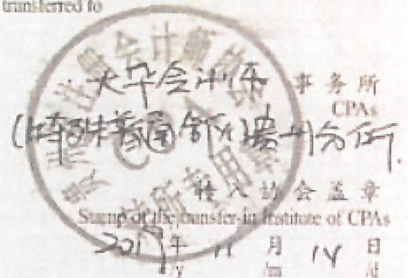 transferred to
大华会计师 事务所
CPAs
(特殊普通合伙)贵州分所
转入协会盖章
Stamp of the transfer-in Institute of CPAs
年 11 月 14 日
/y /m /d
注册会计师协会